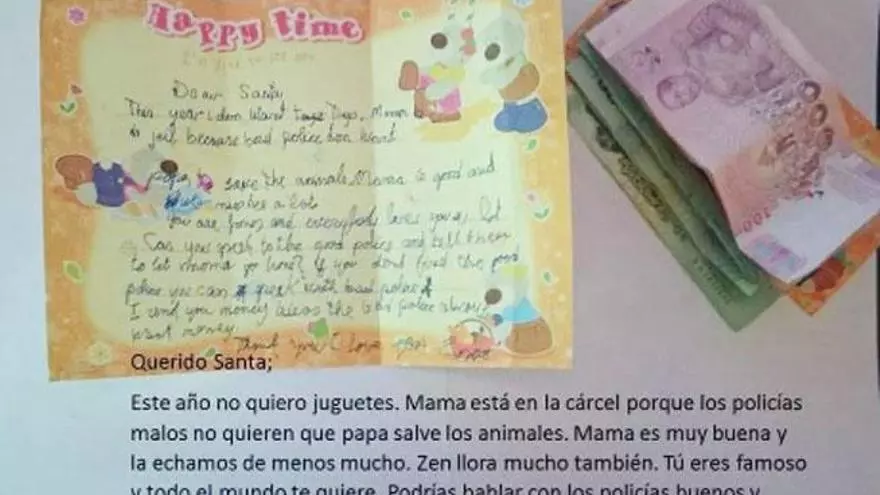 Happy time
Dear Santa
This year I don want toys, Mama
is jail because bad police don want
papa to save the animals. Mama is good and
miss her a lot.
You are famous and everybody loves you a lot
Can you speak to the good police and tell them
to let mama go home? If you dont find the good
police you can speak with bad police
I send you money the bad police always
want money.
Thank you I love you
Querido Santa;
Este año no quiero juguetes. Mama está en la cárcel porque los policías
malos no quieren que papa salve los animales. Mama es muy buena y
la echamos de menos mucho. Zen llora mucho también. Tú eres famoso
y todo el mundo te quiere. Podrías hablar con los policías buenos y